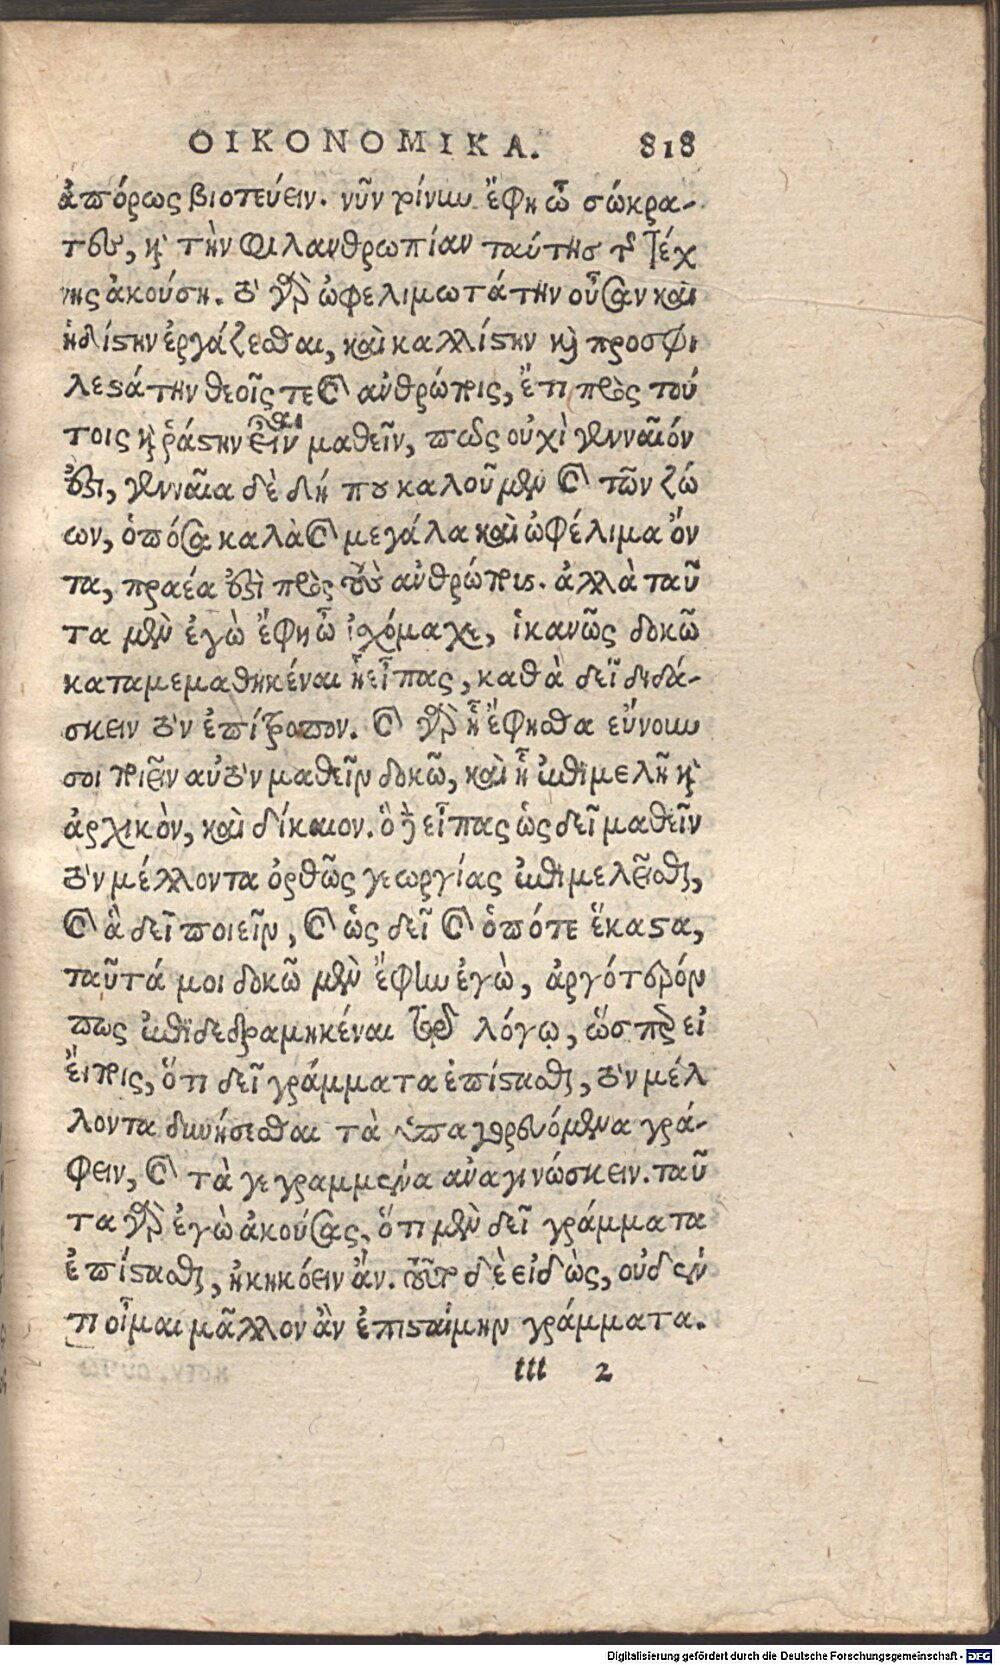 ΟΙΚΟΝΟΜΙΚΑ. 818
ἀπόρως βιοτεύειν. νῦν τοίνυν ἔφη ὦ σώκρα-
τες, καὶ τὴν φιλανθρωπίαν ταύτης τῆς τέχ
νης ἀκούση. τὸ γὰρ ὠφελιμωτάτην οὖσαν καὶ
ἡδίστην ἐργάζεσθαι, καὶ καλλίστην καὶ προσφι
λεστάτην θεοῖς τε καὶ ἀνθρώποις, ἔτι πρὸς τού
τοις καὶ ῥάστην εἶναι μαθεῖν, πῶς οὐχὶ γενναῖόν
ἐστι, γενναῖα δὲ δή που καλοῦμεν καὶ τῶν ζώ
ων, ὁπόσα καλὰ καὶ μεγάλα καὶ ὠφέλιμα ὄν
τα, πραέα ἐστὶ πρὸς τοὺς ἀνθρώποις. ἀλλὰ ταῦ
τα μὲν ἐγὼ ἔφη ὦ ἰχόμαχε, ἱκανῶς δοκῶ
καταμεμαθηκέναι ᾗ εἶπας, καθὰ δεῖ διδά-
σκειν τὸν ἐπίτροπον. καὶ γὰρ ᾗ ἔφησθα εὔνουν
σοι ποιεῖν αὐτὸν μαθεῖν δοκῶ, καὶ ᾗ ἐπιμελῆ καὶ
ἀρχικὸν, καὶ δίκαιον. ὃ δὲ εἶπας ὡς δεῖ μαθεῖν
τὸν μέλλοντα ὀρθῶς γεωργίας ἐπιμελεῖσθαι,
καὶ ἃ δεῖ ποιεῖν, καὶ ὡς δεῖ καὶ ὁπότε ἕκαστα,
ταῦτά μοι δοκῶ μὲν ἔφην ἐγὼ, ἀργότερόν
πως ἐπιδεδραμηκέναι τῷ λόγῳ, ὥσπερ εἰ
εἴποις, ὅτι δεῖ γράμματα ἐπίστασθαι, τὸν μέλ
λοντα δυνήσεσθαι τὰ ὑπαγορευόμενα γρά-
φειν, καὶ τὰ γεγραμμένα ἀναγινώσκειν. ταῦ
τα γὰρ ἐγὼ ἀκούσας, ὅτι μὲν δεῖ γράμματα
ἐπίστασθαι, ἠκηκόειν ἄν. τοῦτο δὲ εἰδὼς, οὐδέν
τι οἶμαι μᾶλλον ἂν ἐπισταίμην γράμματα.
ttt 2
Digitalisierung gefördert durch die Deutsche Forschungsgemeinschaft - DFG